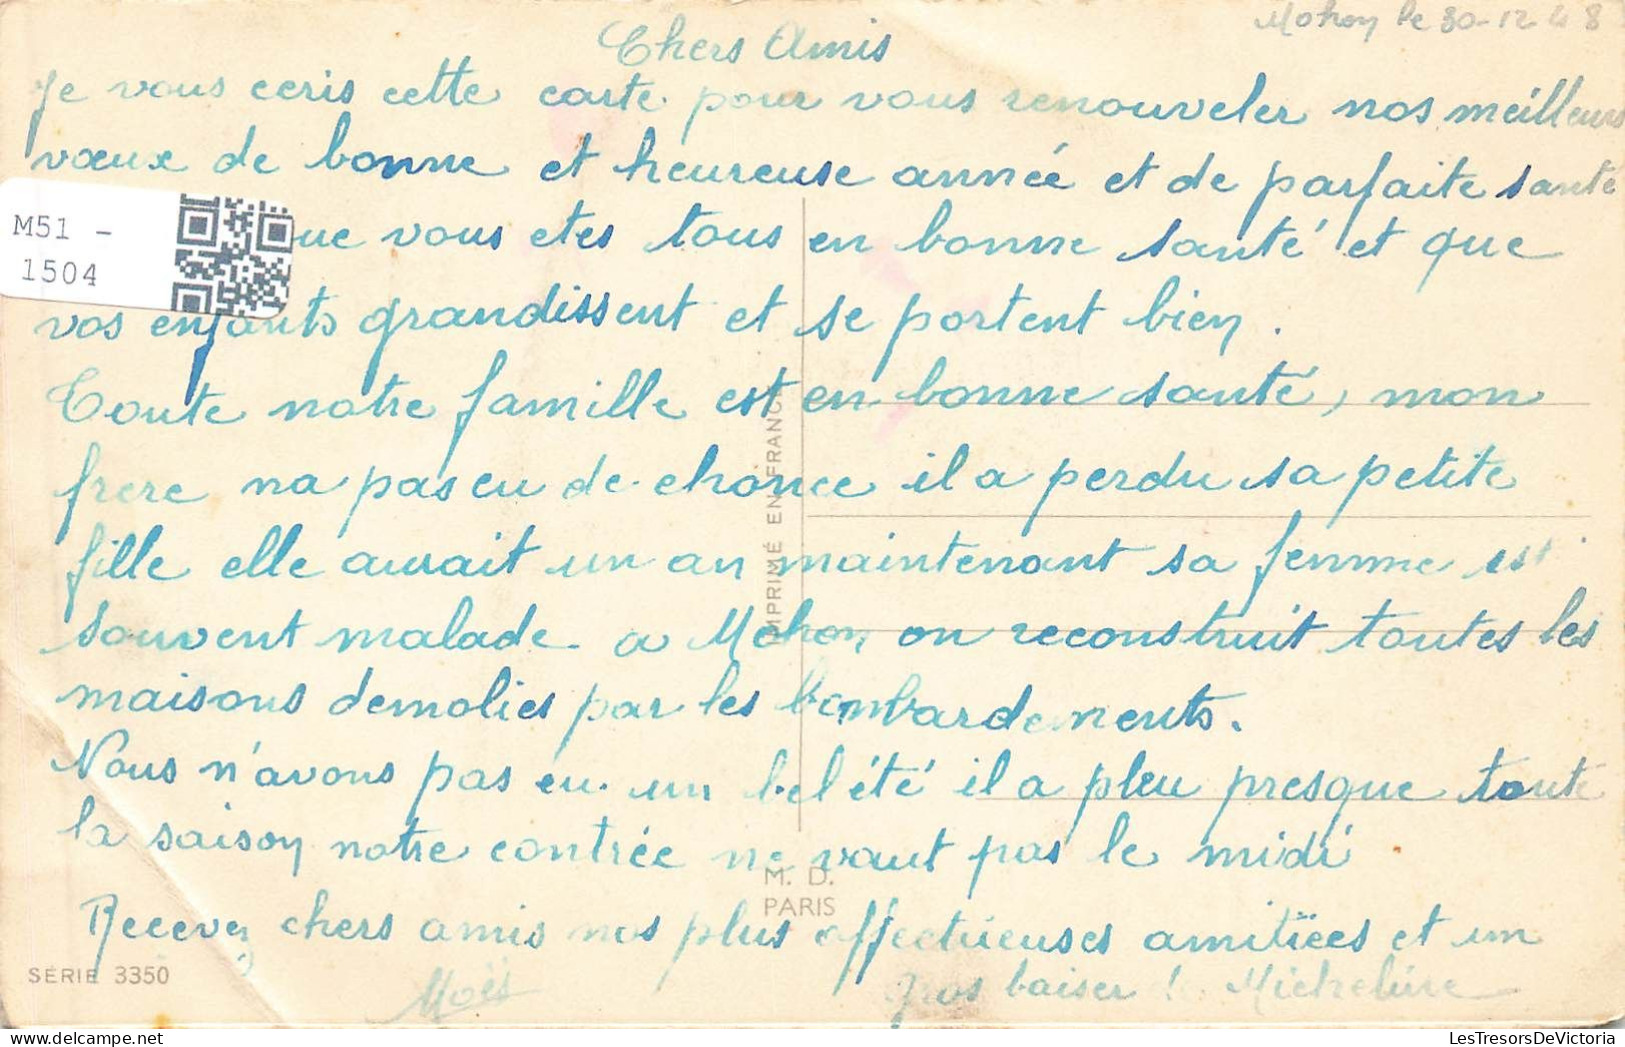 Mohon le 30-12-48
Chers Amis
Je vous ecris cette carte pour vous renouveler nos meilleurs
vœux de bonne et heureuse année et de parfaite santé
M51 -
1504
que vous etes tous en bonne santé et que
vos enfants grandissent et se portent bien.
Toute notre famille est en bonne santé, mon
frere na pas eu de chance il a perdu sa petite
fille elle aurait un an maintenant sa femme est
souvent malade a Mohon on reconstruit toutes les
maisons demolies par les bombardements.
Nous n'avons pas eu un bel été il a pleu presque toute
la saison notre contrée ne vaut pas le midi
Recevez chers amis nos plus affectueuses amitiées et un
gros baiser! Micheline
IMPRIMÉ EN FRANCE
M. D.
PARIS
SÉRIE 3350
LesTresorsDeVictoria